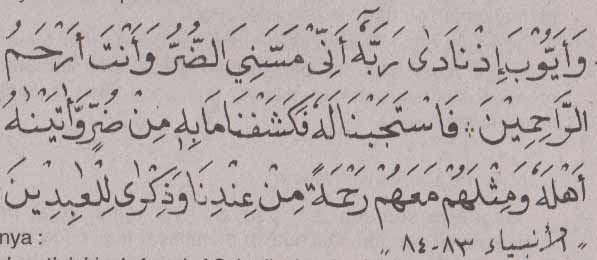 وَأَيُّوبَ إِذْ نَادٰى رَبَّهٗٓ أَنِّيْ مَسَّنِيَ الضُّرُّ وَأَنْتَ أَرْحَمُ
الرَّاحِمِيْنَ ۞ فَاسْتَجَبْنَا لَهٗ فَكَشَفْنَا مَا بِهٖ مِنْ ضُرٍّ وَّاٰتَيْنٰهُ
أَهْلَهٗ وَمِثْلَهُمْ مَعَهُمْ رَحْمَةً مِنْ عِنْدِنَا وَذِكْرٰى لِلْعٰبِدِيْنَ
nya :
" الأنبياء ٨٣-٨٤ "